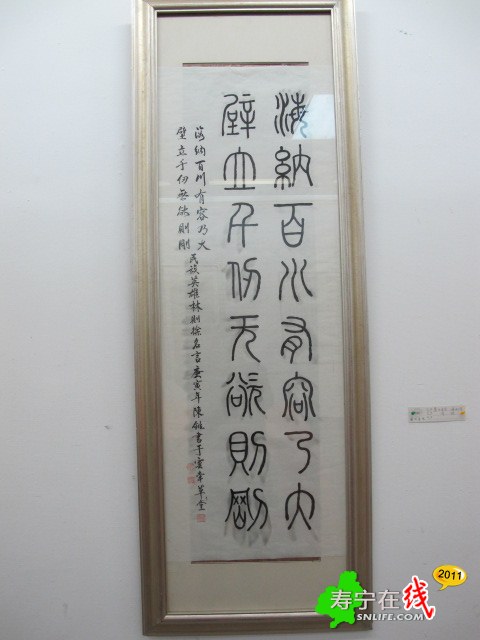 海納百川有容乃大
壁立千仞无欲則剛
海納百川有容乃大
壁立千仞無欲則剛
民族英雄林則徐名言庚寅年陳
書于
草堂
2011
寿宁在线
SNLIFE.COM